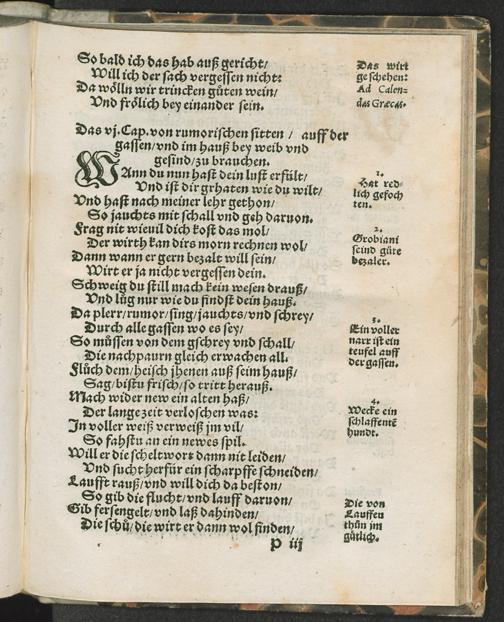 So bald ich das hab auß gericht/
Will ich der sach vergessen nicht:
Da wölln wir trincken güten wein/
Vnd frölich bey einander sein.
Das wirt
geschehen:
Ad Calen=
das Græcas.
Das vj. Cap. von rumorischen sitten / auff der
gassen/vnd im hauß bey weib vnd
gesind/zu brauchen.
WAnn du nun hast dein lust erfült/
Vnd ist dir grhaten wie du wilt/
Vnd hast nach meiner lehr gethon/
So jauchts mit schall vnd geh daruon.
1.
Hat red=
lich gefoch
ten.
Frag nit wieuil dich kost das mol/
Der wirth kan dirs morn rechnen wol/
Dann wann er gern bezalt will sein/
Wirt er ja nicht vergessen dein.
2.
Grobiani
seind güte
bezaler.
Schweig du still mach kein wesen drauß/
Vnd lüg nur wie du findst dein hauß.
Da plerr/rumor/sing/jauchts/vnd schrey/
Durch alle gassen wo es sey/
So müssen von dem gschrey vnd schall/
Die nachpaurn gleich erwachen all.
3.
Ein voller
narr ist ein
teufel auff
der gassen.
Flüch dem/heisch jhenen auß seim hauß/
Sag/bistu frisch/so tritt herauß.
Mach wider new ein alten haß/
Der lange zeit verloschen was:
In voller weiß verweiß jm vil/
So fahstu an ein newes spil.
4.
Wecke ein
schlaffentē
hundt.
Will er die scheltwort dann nit leiden/
Vnd sucht herfür ein scharpffe schneiden/
Laufft rauß/vnd will dich da beston/
So gib die flucht/vnd lauff daruon/
Gib fersengelt/vnd laß dahinden/
Die schü/die wirt er dann wol finden/
Die von
Lauffen
thün jm
gütlich.
P iij